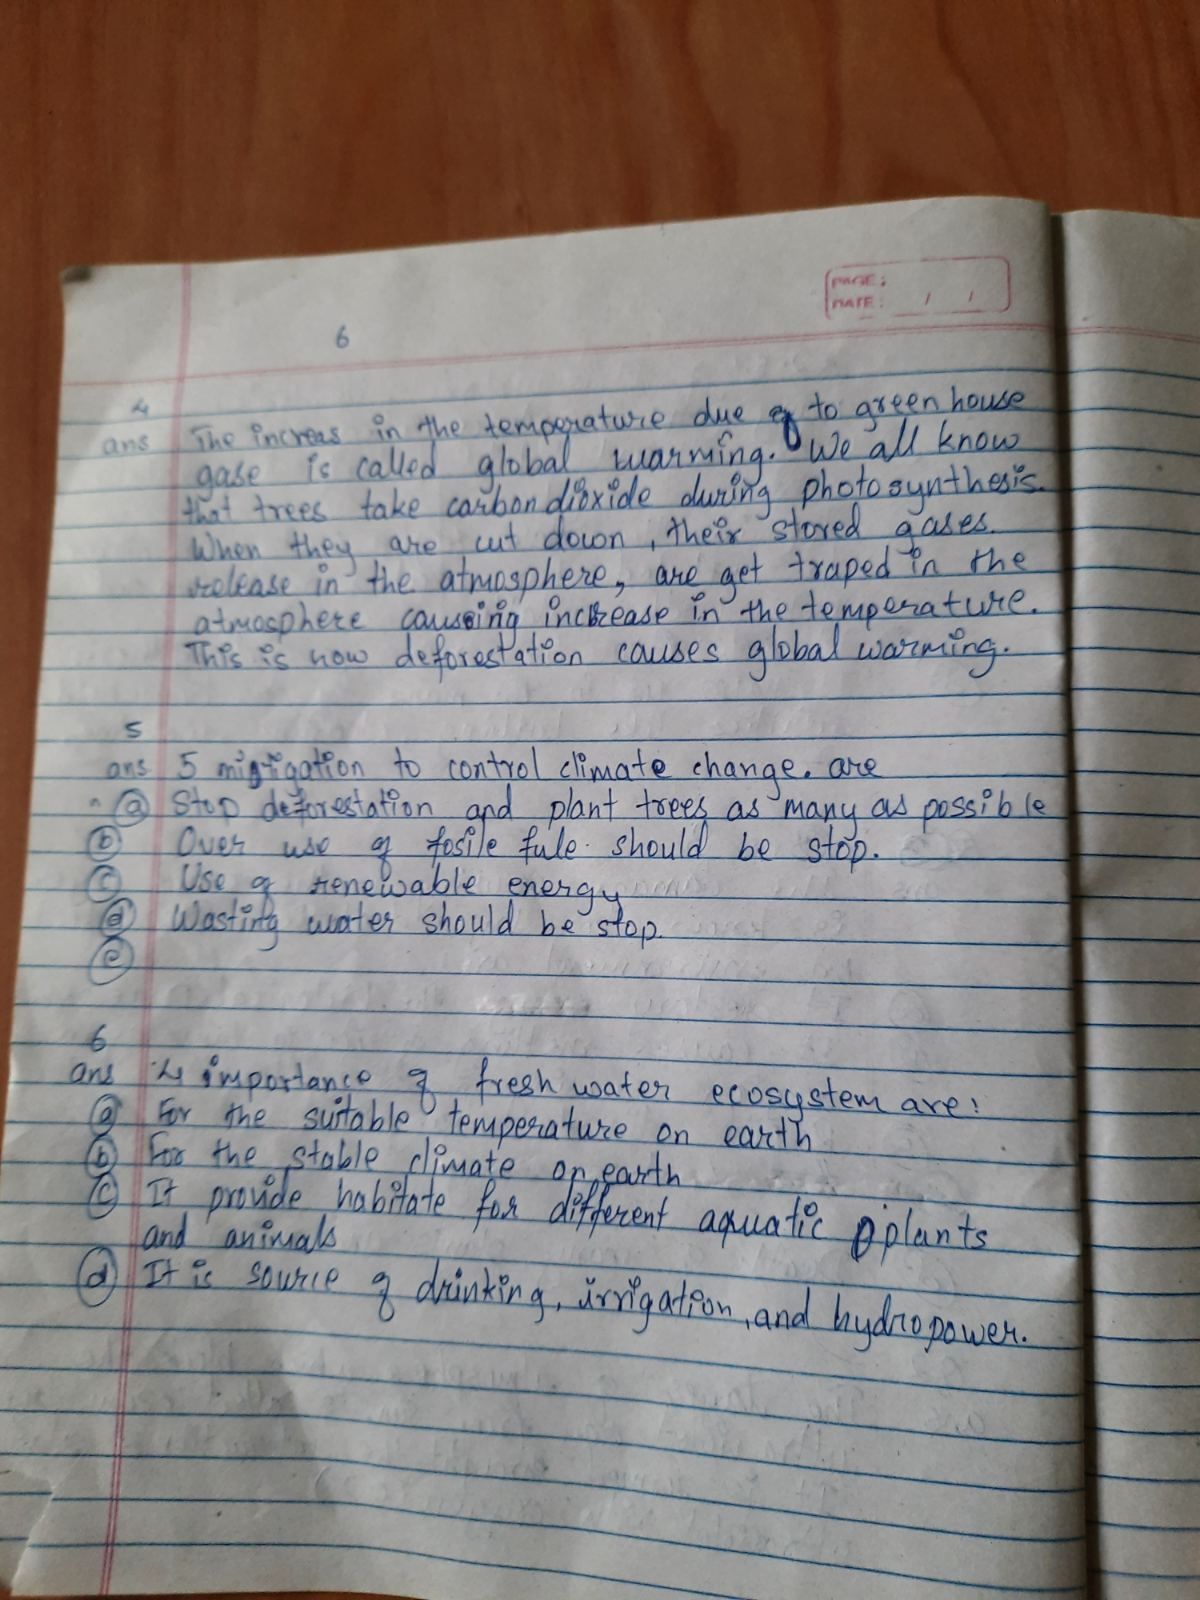 PAGE:
DATE: / /
6
4
ans The increas in the temperature due to green house
gase is called global warming. We all know
that trees take carbondioxide during photosynthesis.
When they are cut down, their stored gases.
release in the atmosphere, are get traped in the
atmosphere causing increase in the temperature.
This is how deforestation causes global warming.
5
ans 5 migtigation to control climate change. are
(a) Stop deforestation and plant trees as many as possible
(b) Over use of fosile fule. should be stop.
(c) Use of renewable energy
(d) Wasting water should be stop.
(e)
6
ans 4 importance of fresh water ecosystem are:
(a) For the suitable temperature on earth
(b) For the stable climate on earth
(c) It provide habitate for different aquatic plants
and animals
(d) It is source of drinking, irrigation, and hydropower.